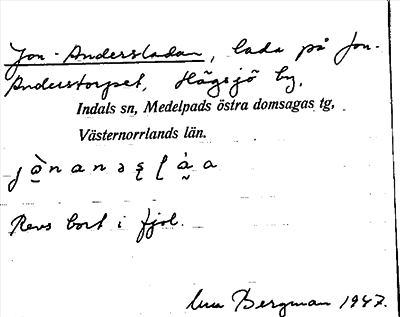 Jon-Andersladan, lada på Jon-
Anderstorpet, Högsjö by,
Indals sn, Medelpads östra domsagas tg,
Västernorrlands län.
Revs bort i fjol.
Bergman 1947.